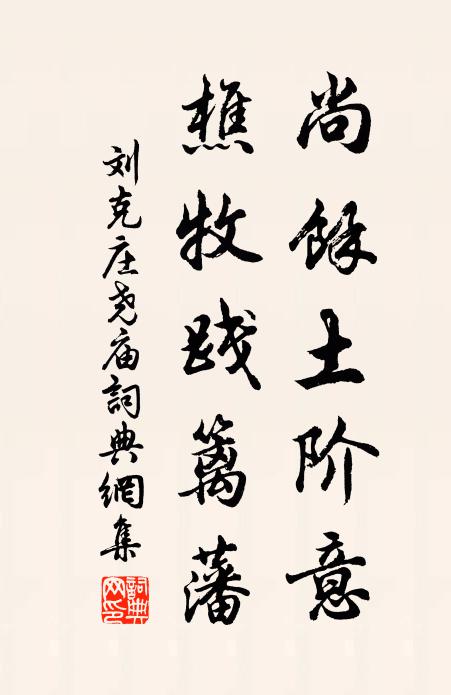 尚餘土阶意
樵牧践篱藩
刘克庄尧庙詞典網集
詞典网印